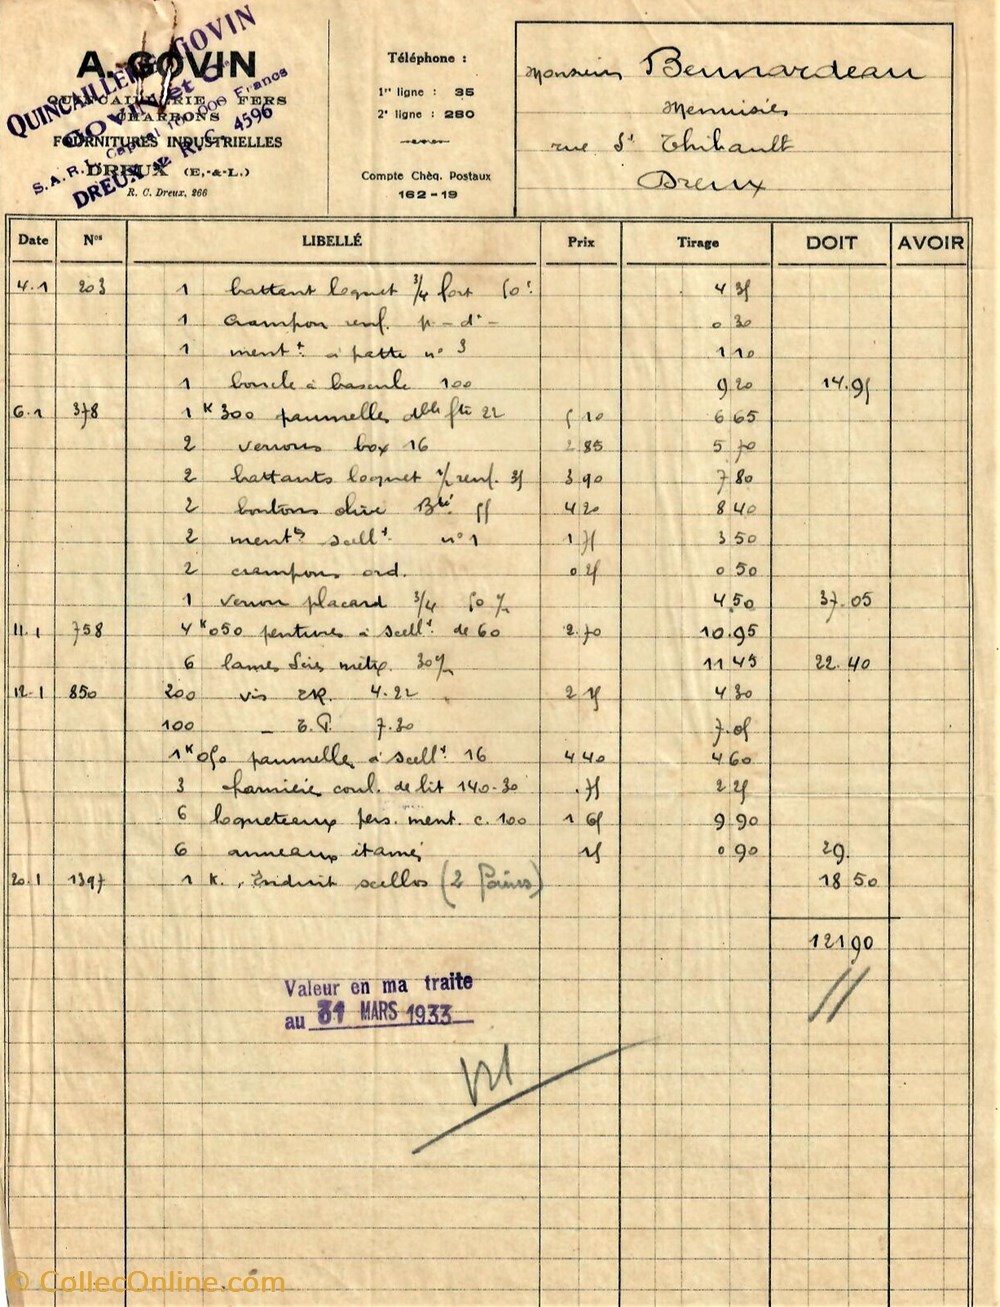 A. GOVIN
QUINCAILLERIE FERS
CHARBONS
FOURNITURES INDUSTRIELLES
DREUX (E.-&-L.)
R. C. Dreux, 266
QUINCAILLERIE GOVIN
GOVIN et Cie
S.A.R.L. Capital 100.000 Francs
DREUX - R.C. 4596
Téléphone :
1re ligne : 35
2e ligne : 280
Compte Chèq. Postaux
162-19
Monsieur Bennardeau
Menuisier
rue St Thibault
Dreux
Date Nos LIBELLÉ Prix Tirage DOIT AVOIR
4.1 203 1 battant loquet 3/4 fort 50% 4 35
1 crampon renf. p - d° - 0 30
1 ment.t à patte n° 3 1 10
1 boucle à bascule 100 9 20 14.95
6.1 378 1 K 300 paumelles dble fte 22 5 10 6 65
2 verrous box 16 2 85 5 70
2 battants loquet 1/2 renf. 35 3 90 7 80
2 boutons olive 55 4 20 8 40
2 ment.ts scell.t n° 1 1 75 3 50
2 crampons ord. 0 25 0 50
1 verrou placard 3/4 50 % 4.50 37.05
11.1 758 4 K 050 pentures à scell.t de 60 2.70 10.95
6 lames scies métx. 30% 11 45 22.40
12.1 850 200 vis 4.22 2 15 4 30
100 - T.P. 7.30 7.05
1 K 050 paumelles à scell.t 16 4 40 4 60
3 charnières coul. de lit 140-30 .75 2 25
6 loqueteaux pers. ment. c. 100 1 65 9 90
6 anneaux étamés 15 0 90 29.
20.1 1397 1 K. Enduit scellos (2 Poires) 18 50
121 90
Valeur en ma traite
au 31 MARS 1933
© CollecOnline.com